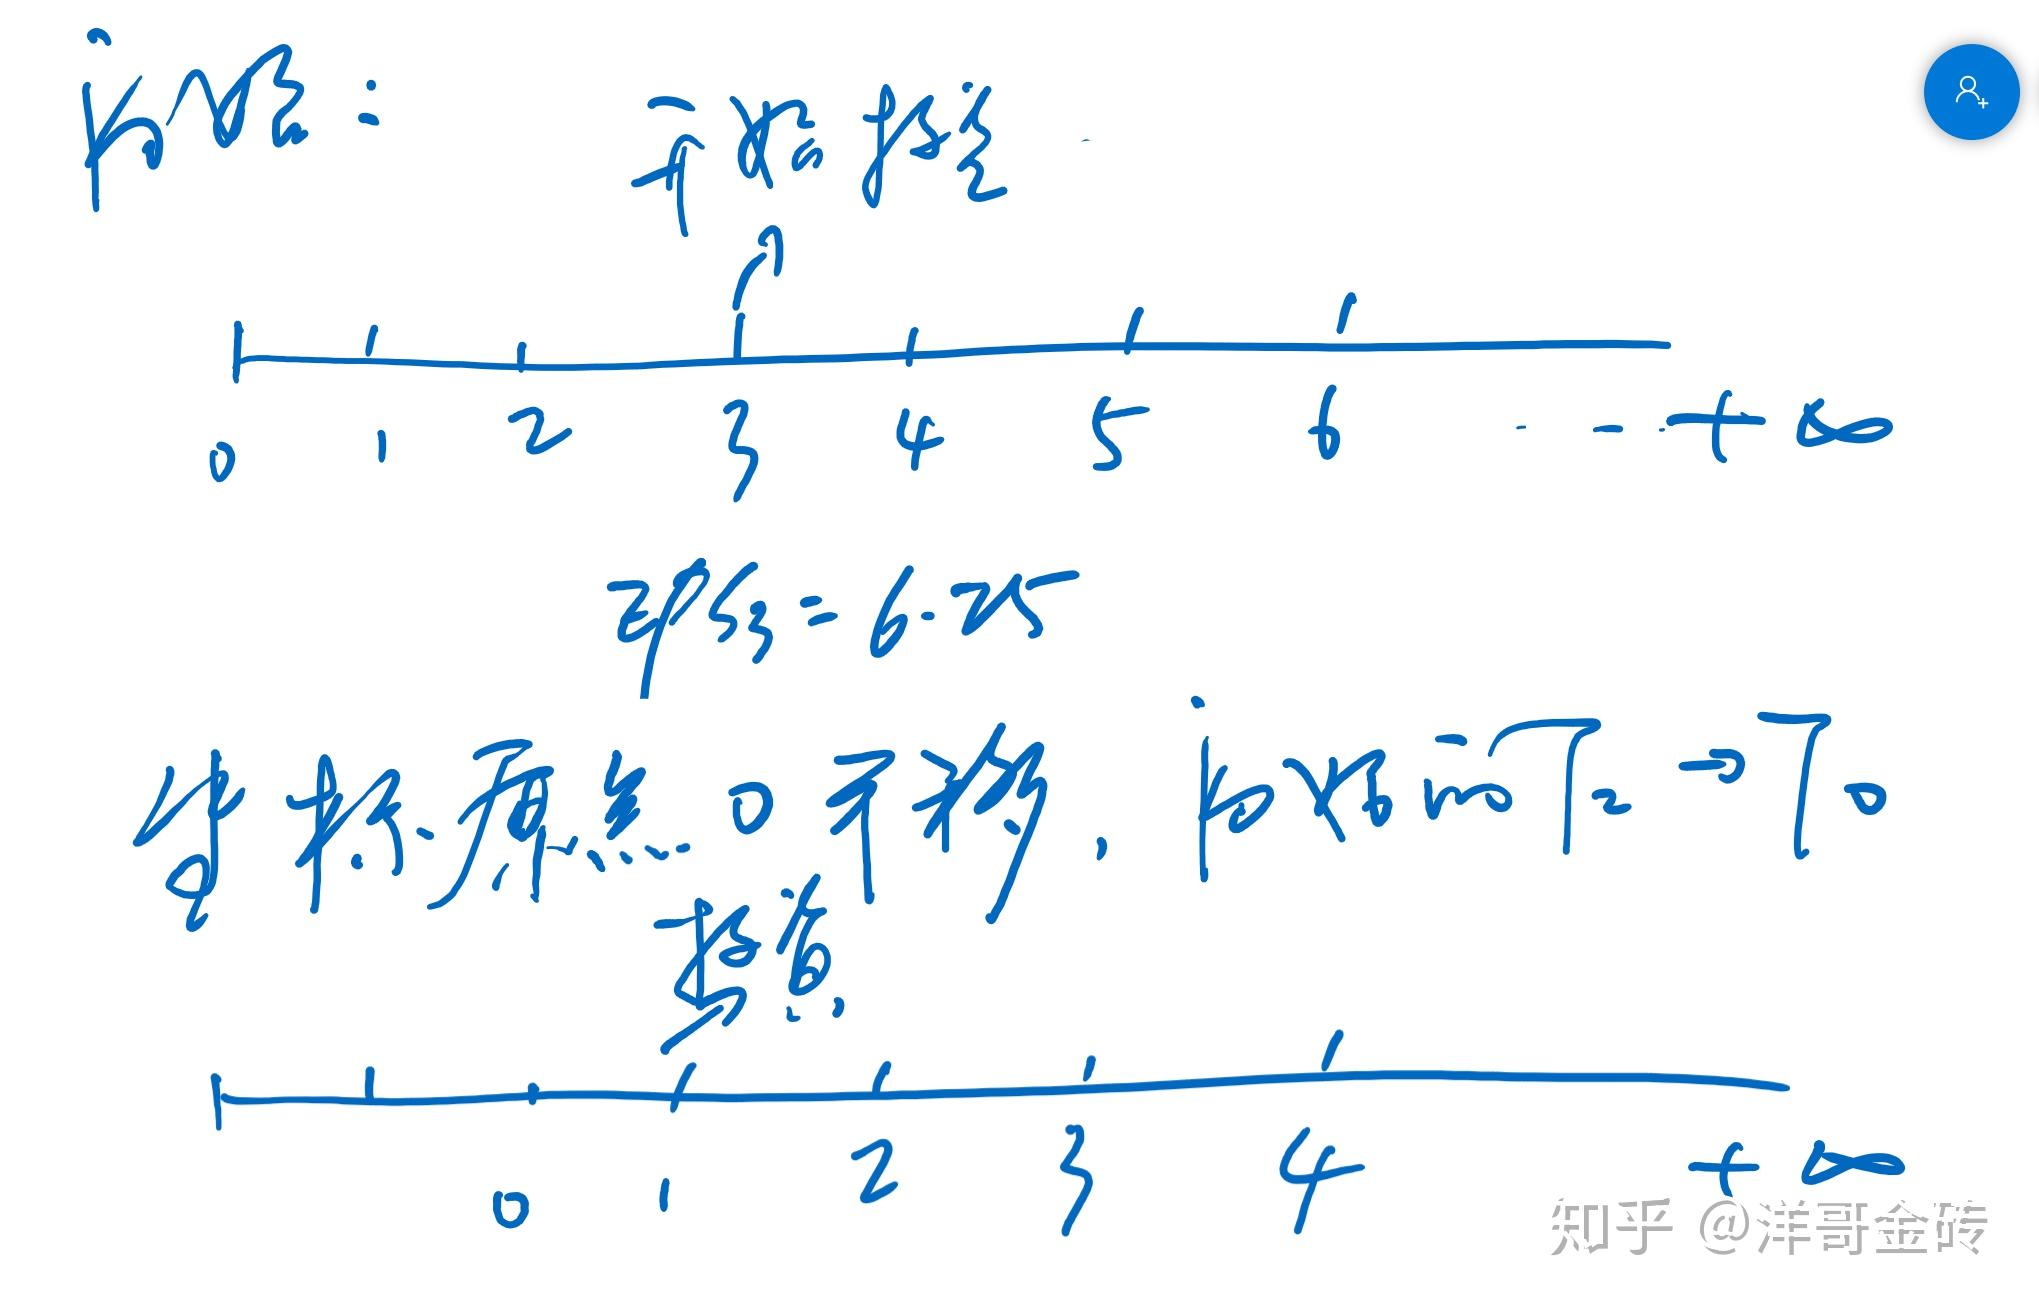 初始: 开始投资
0 1 2 3 4 5 6 ... +∞
EPS3=6.25
坐标原点0平移, 初始的T2→T0
投资
0 1 2 3 4 +∞
知乎 @洋哥金砖